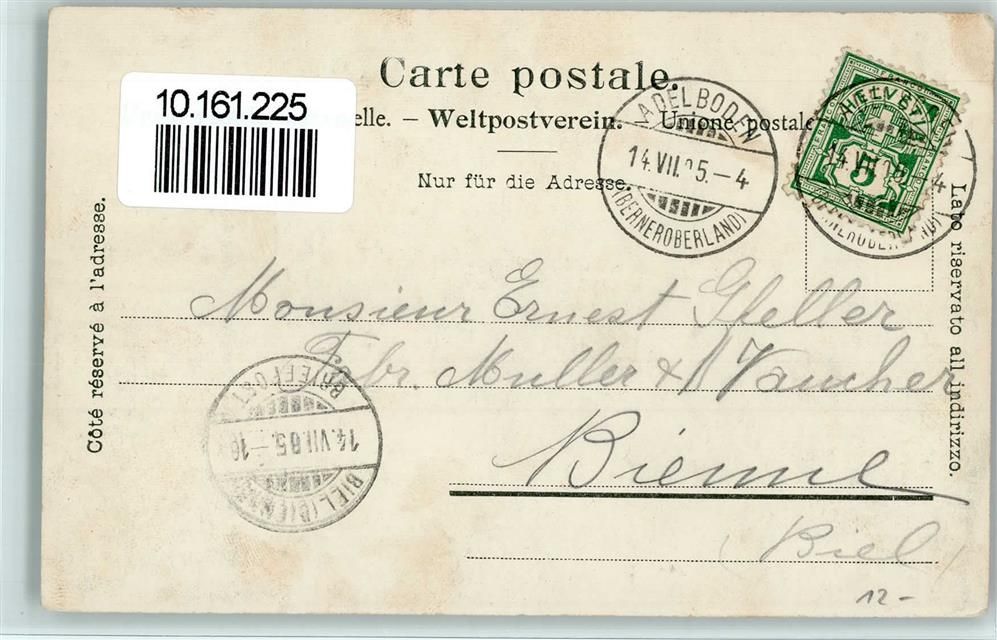 Carte postale.
10.161.225
elle. – Weltpostverein. – Unione postale
Nur für die Adresse.
ADELBODEN
14.VII.05.–4
(BERNEROBERLAND)
HELVETIA
5
Côté réservé à l'adresse.
Lato riservato all'indirizzo.
Monsieur Ernest Gfeller
Fabr. Muller & Vaucher
Bienne
(Biel)
BRIEFPOST
14.VII.05.–10
BIEL (BIENNE)
12-